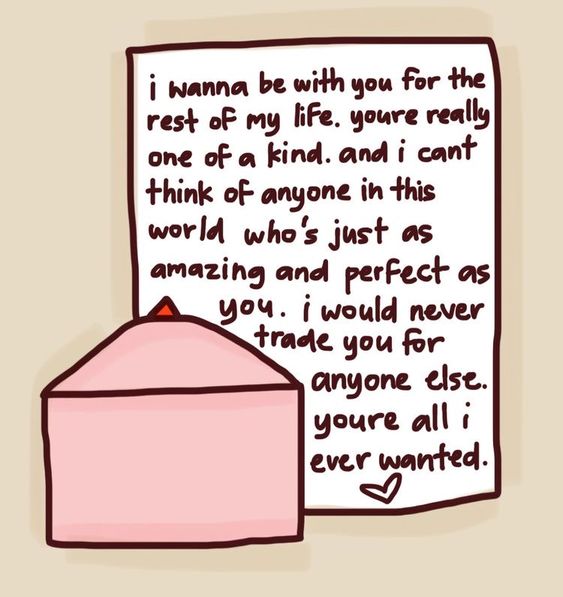 i wanna be with you for the
rest of my life. youre really
one of a kind. and i cant
think of anyone in this
world who's just as
amazing and perfect as
you. i would never
trade you for
anyone else.
youre all i
ever wanted.